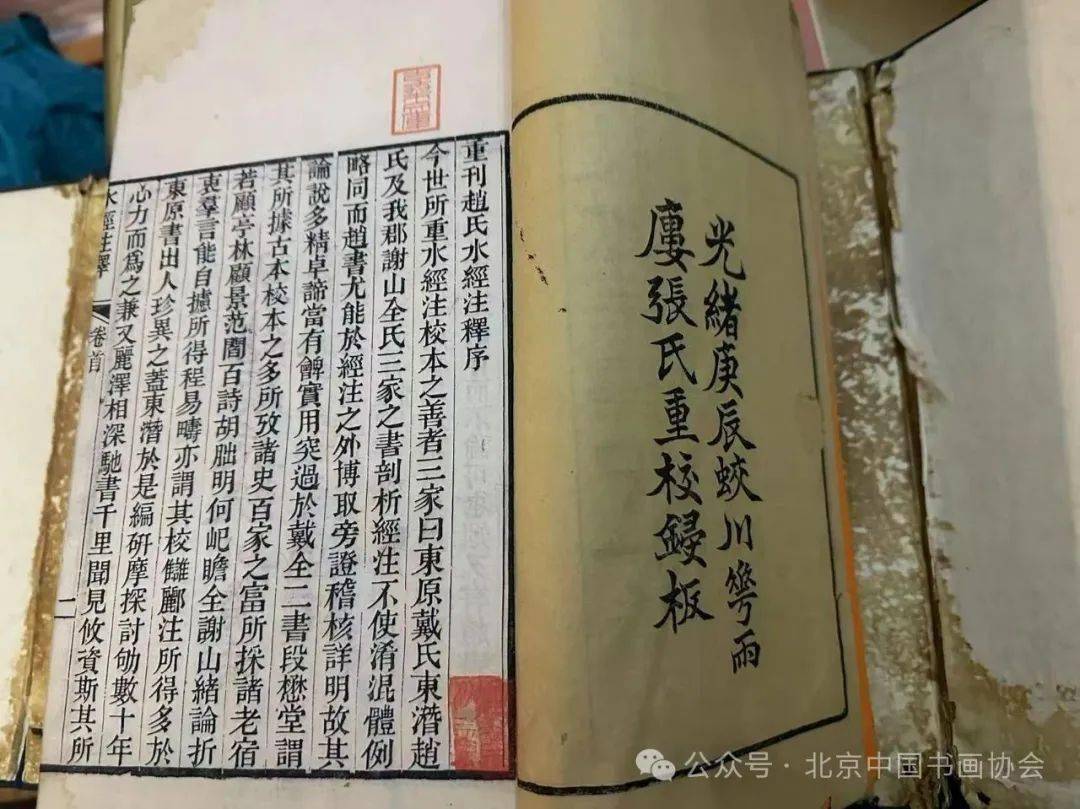 光緒庚辰蛟川華雨
廔張氏重校鋟板
重刊趙氏水經注釋序
今世所重水經注校本之善者三家曰東原戴氏東潛趙
氏及我郡謝山全氏三家之書剖析經注不使淆混體例
略同而趙書尤能於經注之外博取旁證稽核詳明故其
論說多精卓諦當有裨實用突過於戴全二書段懋堂謂
其所據古本校本之多所攷諸史百家之富所採諸老宿
若顧亭林顧景范閻百詩胡朏明何屺瞻全謝山緒論折
衷羣言能自攄所得程易疇亦謂其校讎酈注所得多於
東原書出人珍異之蓋東潛於是編研摩探討劬數十年
心力而為之兼又麗澤相深馳書千里聞見攸資斯其所
水經注釋 卷首 一
公众号·北京中国书画协会